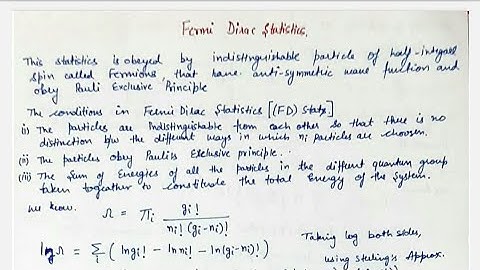 Fermi Dirac Statistics.
This statistics is obeyed by indistinguishable particle of half-integral
spin called Fermions, that have anti-symmetric wave function and
obey Pauli Exclusive Principle
The conditions in Fermi Dirac Statistics [(FD) Stats]
(i) The particles are Indistinguishable from each other so that there is no
distinction b/w the different ways in which ni particles are choosen.
(ii) The particles obey Pauli's Exclusive principle.
(iii) The Sum of Energies of all the particles in the diffent quantum group
taken together to constitute the total Energy of the system.
we know. Ω = πi gi! / ni! (gi-ni)!
Taking log both sides,
logΩ = Σi (ln gi! - ln ni! - ln (gi-ni)!)
using sterling's Approx.